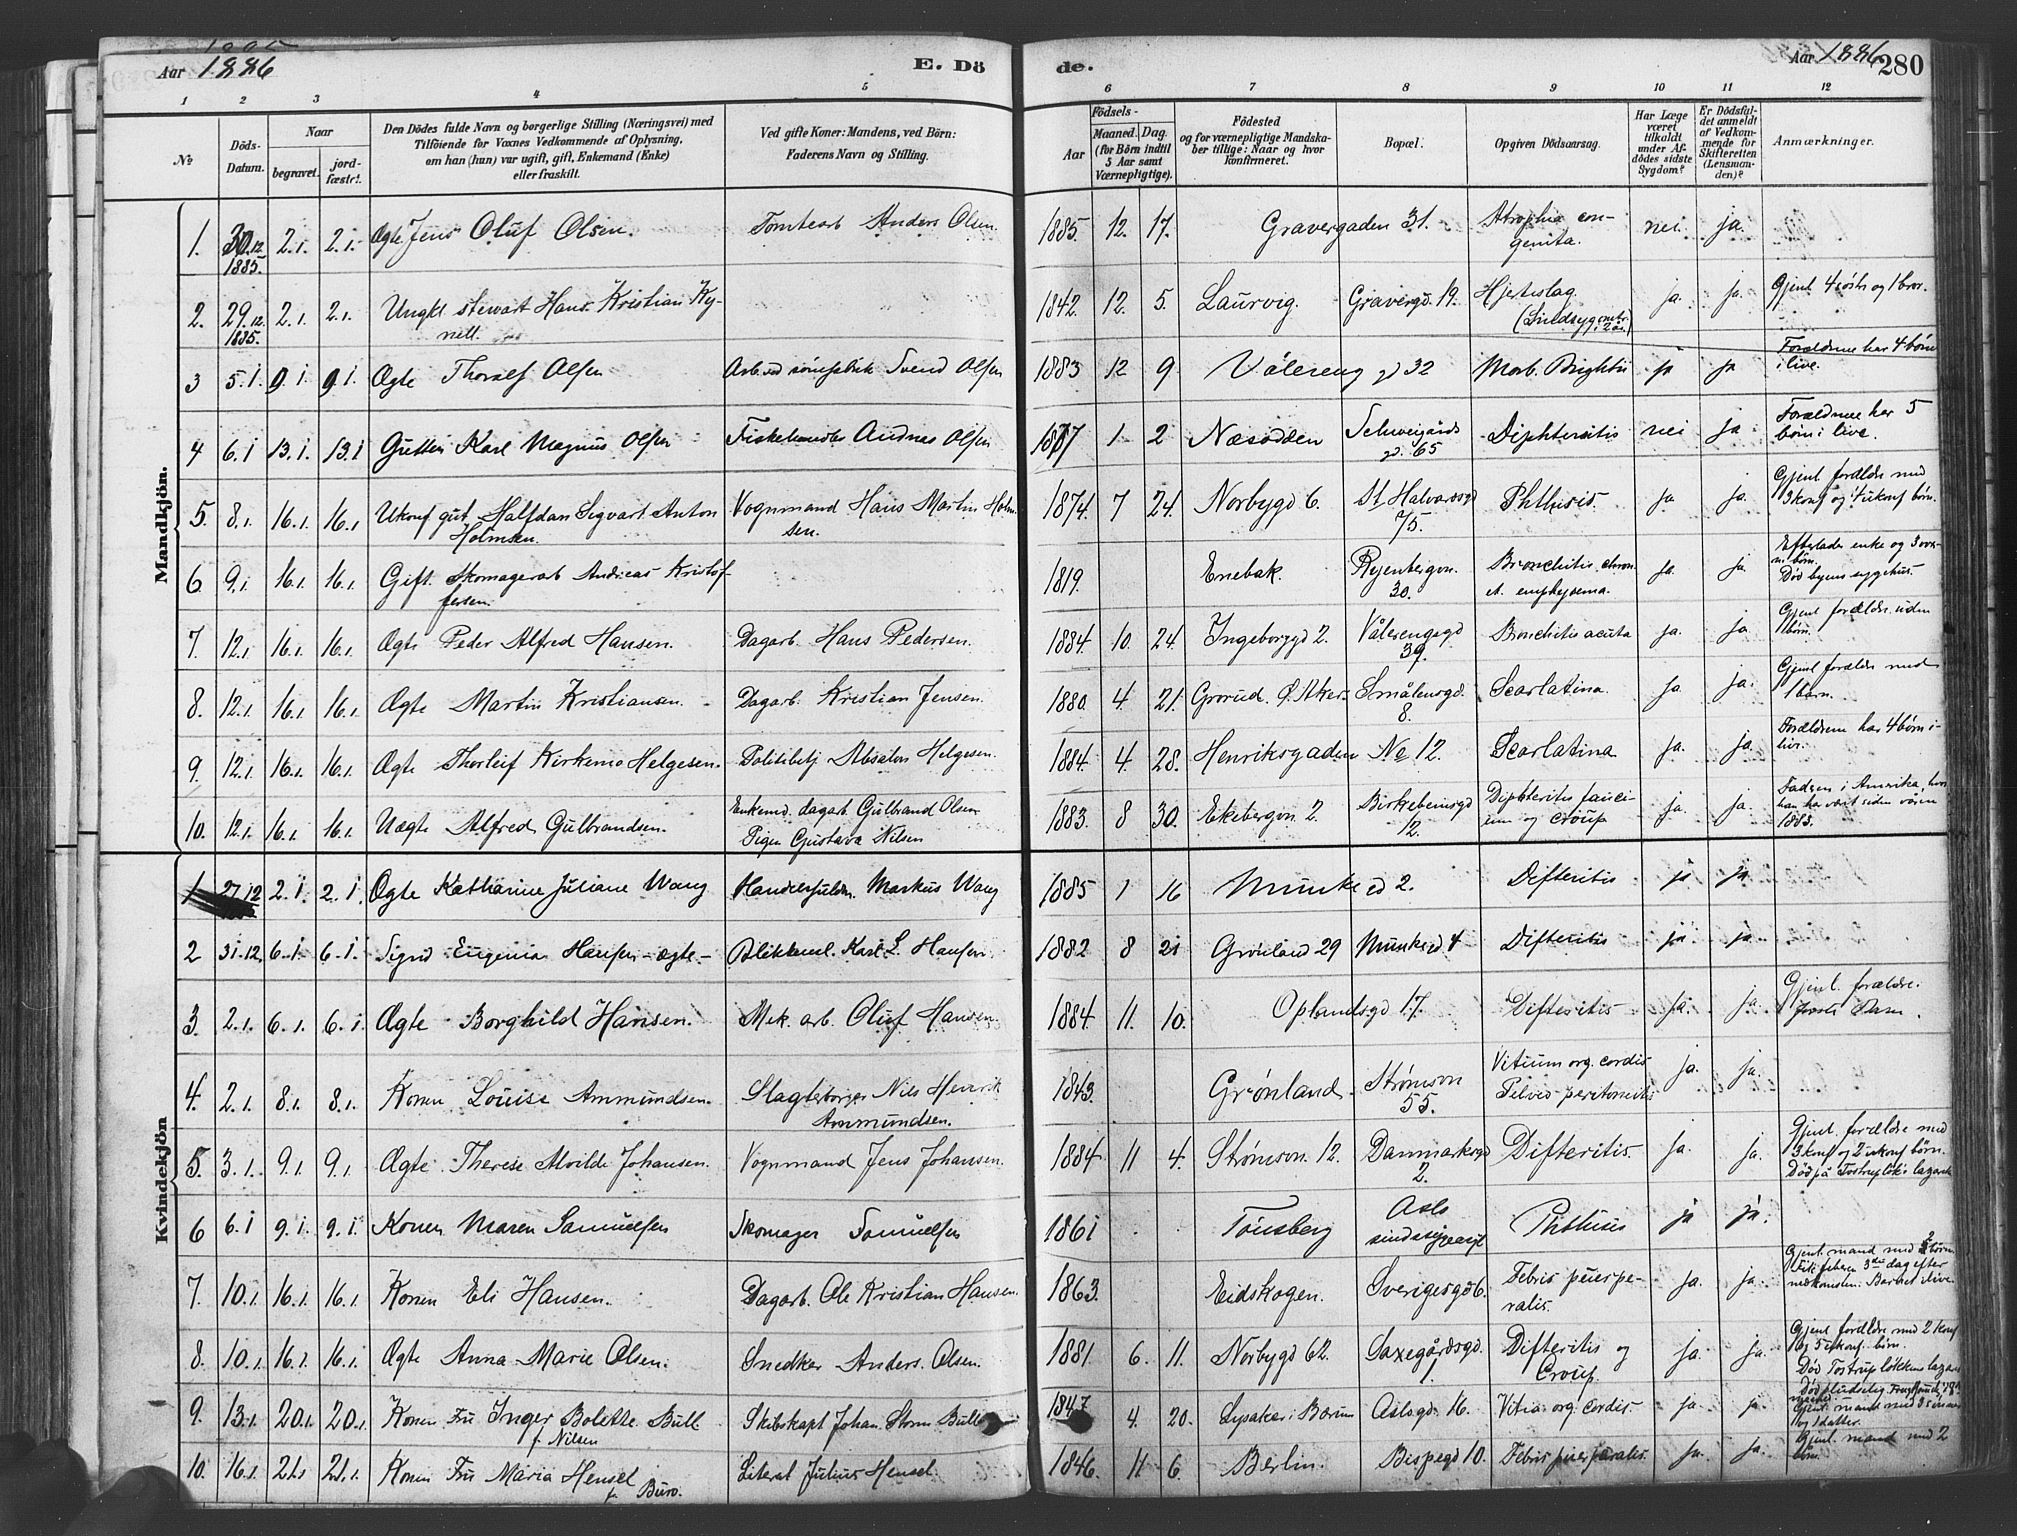 Aar 1886 E. Dö
de. Aar 1886 280
1 2 3 4 5
6 7 8 9 10 11 12
№
Döds-
Datum.
Naar
begravet.
jord-
fæstet.
Den Dödes fulde Navn og borgerlige Stilling (Næringsvei) med
Tilföiende for Voxnes Vedkommende af Oplysning,
om han (hun) var ugift, gift, Enkemand (Enke)
eller fraskilt.
Ved gifte Koner: Mandens, ved Börn:
Faderens Navn og Stilling.
Födsels-
Aar
Maaned. Dag.
(for Börn indtil
5 Aar samt
Værnepligtige).
Födested
og for værnepligtige Mandska-
ber tillige: Naar og hvor
konfirmeret.
Bopæl.
Opgiven Dödsaarsag.
Har Læge
været
tilkaldt
under Af-
dödes sidste
Sygdom?
Er Dödsfal-
det anmeldt
af Vedkom-
mende for
Skifteretten
(Lensman-
den)?
Anmærkninger.
Mandkjön.
1. 30.12. 1885. 2.1. 2.1. Ægte Jens Oluf Olsen. Tomtearb Anders Olsen. 1885. 12. 17. Gravergaden 31. Atrophia con-
genita. nei. ja.
2. 29.12. 1885. 2.1. 2.1. Ungkl. stewart Hans Kristian Ky-
nell. 1842. 12. 5. Laurvig. Gravergd. 19. Hjerteslag ja. ja. Gjenl. 4 søstr og 1 bror.
3 5.1. 9.1 9.1. Ægte Thoralf Olsen Arb. ved sömfabrik Svend Olsen 1883 12 9 Vålereng gd 32 Morb. Brightii ja ja Forældrene har 4 børn
i live.
4 6.1 13.1. 13.1 Gutten Karl Magnus Olsen Fiskehandler Olsen 1877 1 2 Næsodden Schweigårds
gd. 65 Diphteritis nei ja Forældrene har 5
børn i live.
5. 8.1. 16.1. 16.1. Ukonf. gut. Halfdan Sigvart Anton
Holmsen. Vognmand Hans Martin Holm-
sen. 1874. 7 24. Norbygd 6. St. Halvardsgd
75. Phthisis. ja. ja. Gjenl. forældre med
3 konf og 1 ukonf børn.
6 9.1. 16.1. 16.1. Gift. Skomagerarb Andreas Kristof-
fersen. 1819. Enebak. Ryenbergvn.
30. Bronchitis chron.
et emphysema. ja. ja. Efterlader enke og 3 
børn.
Død byens sygehus.
7. 12.1. 16.1. 16.1. Ægte Peder Alfred Hansen. Dagarb. Hans Pedersen. 1884. 10. 24. Ingeborggd 2. Vålerengsgd
39. Bronchitis acuta ja. ja. Gjenl. forældre. uden
børn.
8. 12.1. 16.1. 16.1. Ægte Martin Kristiansen. Dagarb. Kristian Jensen. 1880. 4. 21. Grorud. Ø. Aker. Smålensgd.
8. Scarlatina. ja. ja. Gjenl. forældre med
1 barn.
9. 12.1. 16.1. 16.1. Ægte Thorleif Kirkemo Helgesen. Politibetj Absalon Helgesen. 1884. 4. 28. Henriksgaden No 12. Scarlatina ja. ja. Forældrene har 4 børn i
liv.
10. 12.1. 16.1. 16.1. Uægte Alfred Gulbrandsen. Enkemd. dagarb. Gulbrand Olsen
Pigen Gustava Nilsen 1883. 8 30. Ekebergvn. 2. Birkebeinsgd
12. Diphteritis fauci-
um og croup ja. ja. Faderen i Amerika, hvor
han ha vært siden våren
1883.
Kvindekjön
1 27.12 2.1 2.1. Ægte Kathrine Juliane Wang Markus Wang 1885 1 16 Munkegd 2. Difteritis ja ja
2 31.12. 6.1 6.1. Sigrid Eugenia Hansen - ægte - Blikkensl. Karl L. Hansen. 1882 8 21 Grønland 29 Munkegd 4 Difteritis ja ja.
3. 2.1. 6.1. 6.1. Ægte Borghild Hansen. Mek. arb. Oluf Hansen. 1884. 11. 10. Oplandsgd 17. Difteritis ja. ja. Gjenl. forældre.
første Barn.
4. 2.1. 8.1. 8.1. Konen Louise Ammundsen. Slagterborger Nils Henrik
Ammundsen. 1843. Grønland. Strømson
55. Vitium org. cordis
Pelveo-peritonitis ja. ja.
5. 3.1. 9.1. 9.1. Ægte Therese Alvilde Johansen. Vognmand Jens Johansen. 1884. 11 4. Strømson. 12. Danmarksgd
2. Difteritis. ja. ja. Gjenl. forældre med
3 konf og 2 ukonf børn.
Død på Tostrupløk's lazaret
6 6.1 9.1. 9.1. Konen Maren Samuelsen Skomager Samuelsen 1861 Tønsberg Aslo
sindssygeasyl Phthisis ja ja.
7. 10.1. 16.1. 16.1. Konen Eli Hansen. Dagarb. Ole Kristian Hansen. 1863. Eidskogen. Sverigesgd 6. Febris puerpe-
ralis. ja. ja. Gjenl. mand med 2 børn.
Fik feberen 3die dag efter
nedkomsten. Barnet i live.
8. 10.1. 16.1. 16.1. Ægte Anna Marie Olsen. Snedker Anders Olsen. 1881. 6. 11. Norbygd 62. Saxegårdsgd.
1. Difteritis og
Croup. ja. ja. Gjenl. forældre med 2 konf
og 5 ukonf. børn.
Død Tostrupløkkens lazaret
9. 13.1. 20.1. 20.1. Konen Fru Inger Bolette Bull
f. Nilsen Skibskapt Johan Storm Bull 1847. 4. 20. Lysaker i Bærum Aslogd. 16. Vitia org. cordis ja. ja. Død pludselig
Gjenl. mand med 3 sønner
og 1 datter.
10. 16.1. 21.1 21.1. Konen Fru Maria Hensel
f. Buro. Literat Julius Hensel. 1846. 11 6. Berlin. Bispegd 10. Febris puerperalis. ja. ja. Gjenl. mand med 2
børn.